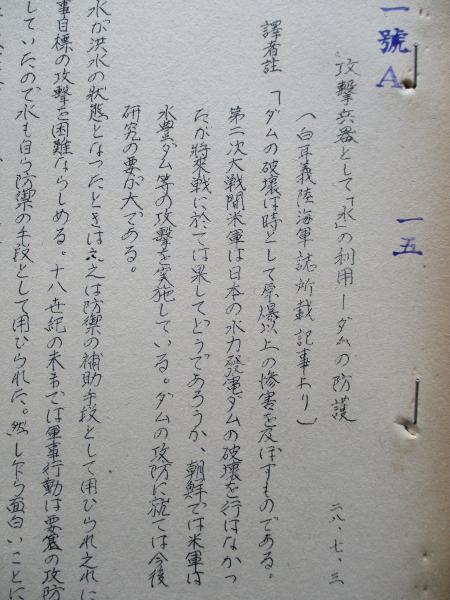 一號A 一五
攻撃兵器として「水」の利用ーダムの防護
二八、七、三
(白耳義陸海軍誌所載記事より)
譯者註 「ダムの破壊は時として原爆以上の惨害を及ぼすものである。
第二次大戦間米軍は日本の水力發電ダムの破壊を行はなかつ
たが将来戦に於ては果してどうであろうか、朝鮮では米軍は
水豊ダム等の攻撃を実施している。ダムの攻防に就ては今後
研究の要が大である。
水が洪水の状態となつたときは之は防禦の補助手段として用ひられそれに
事目標の攻撃を困難ならしめる。十八世紀の末までは軍事行動は要塞の攻防
していたので水も自ら防禦の手段として用ひられた。然し乍ら面白いことに